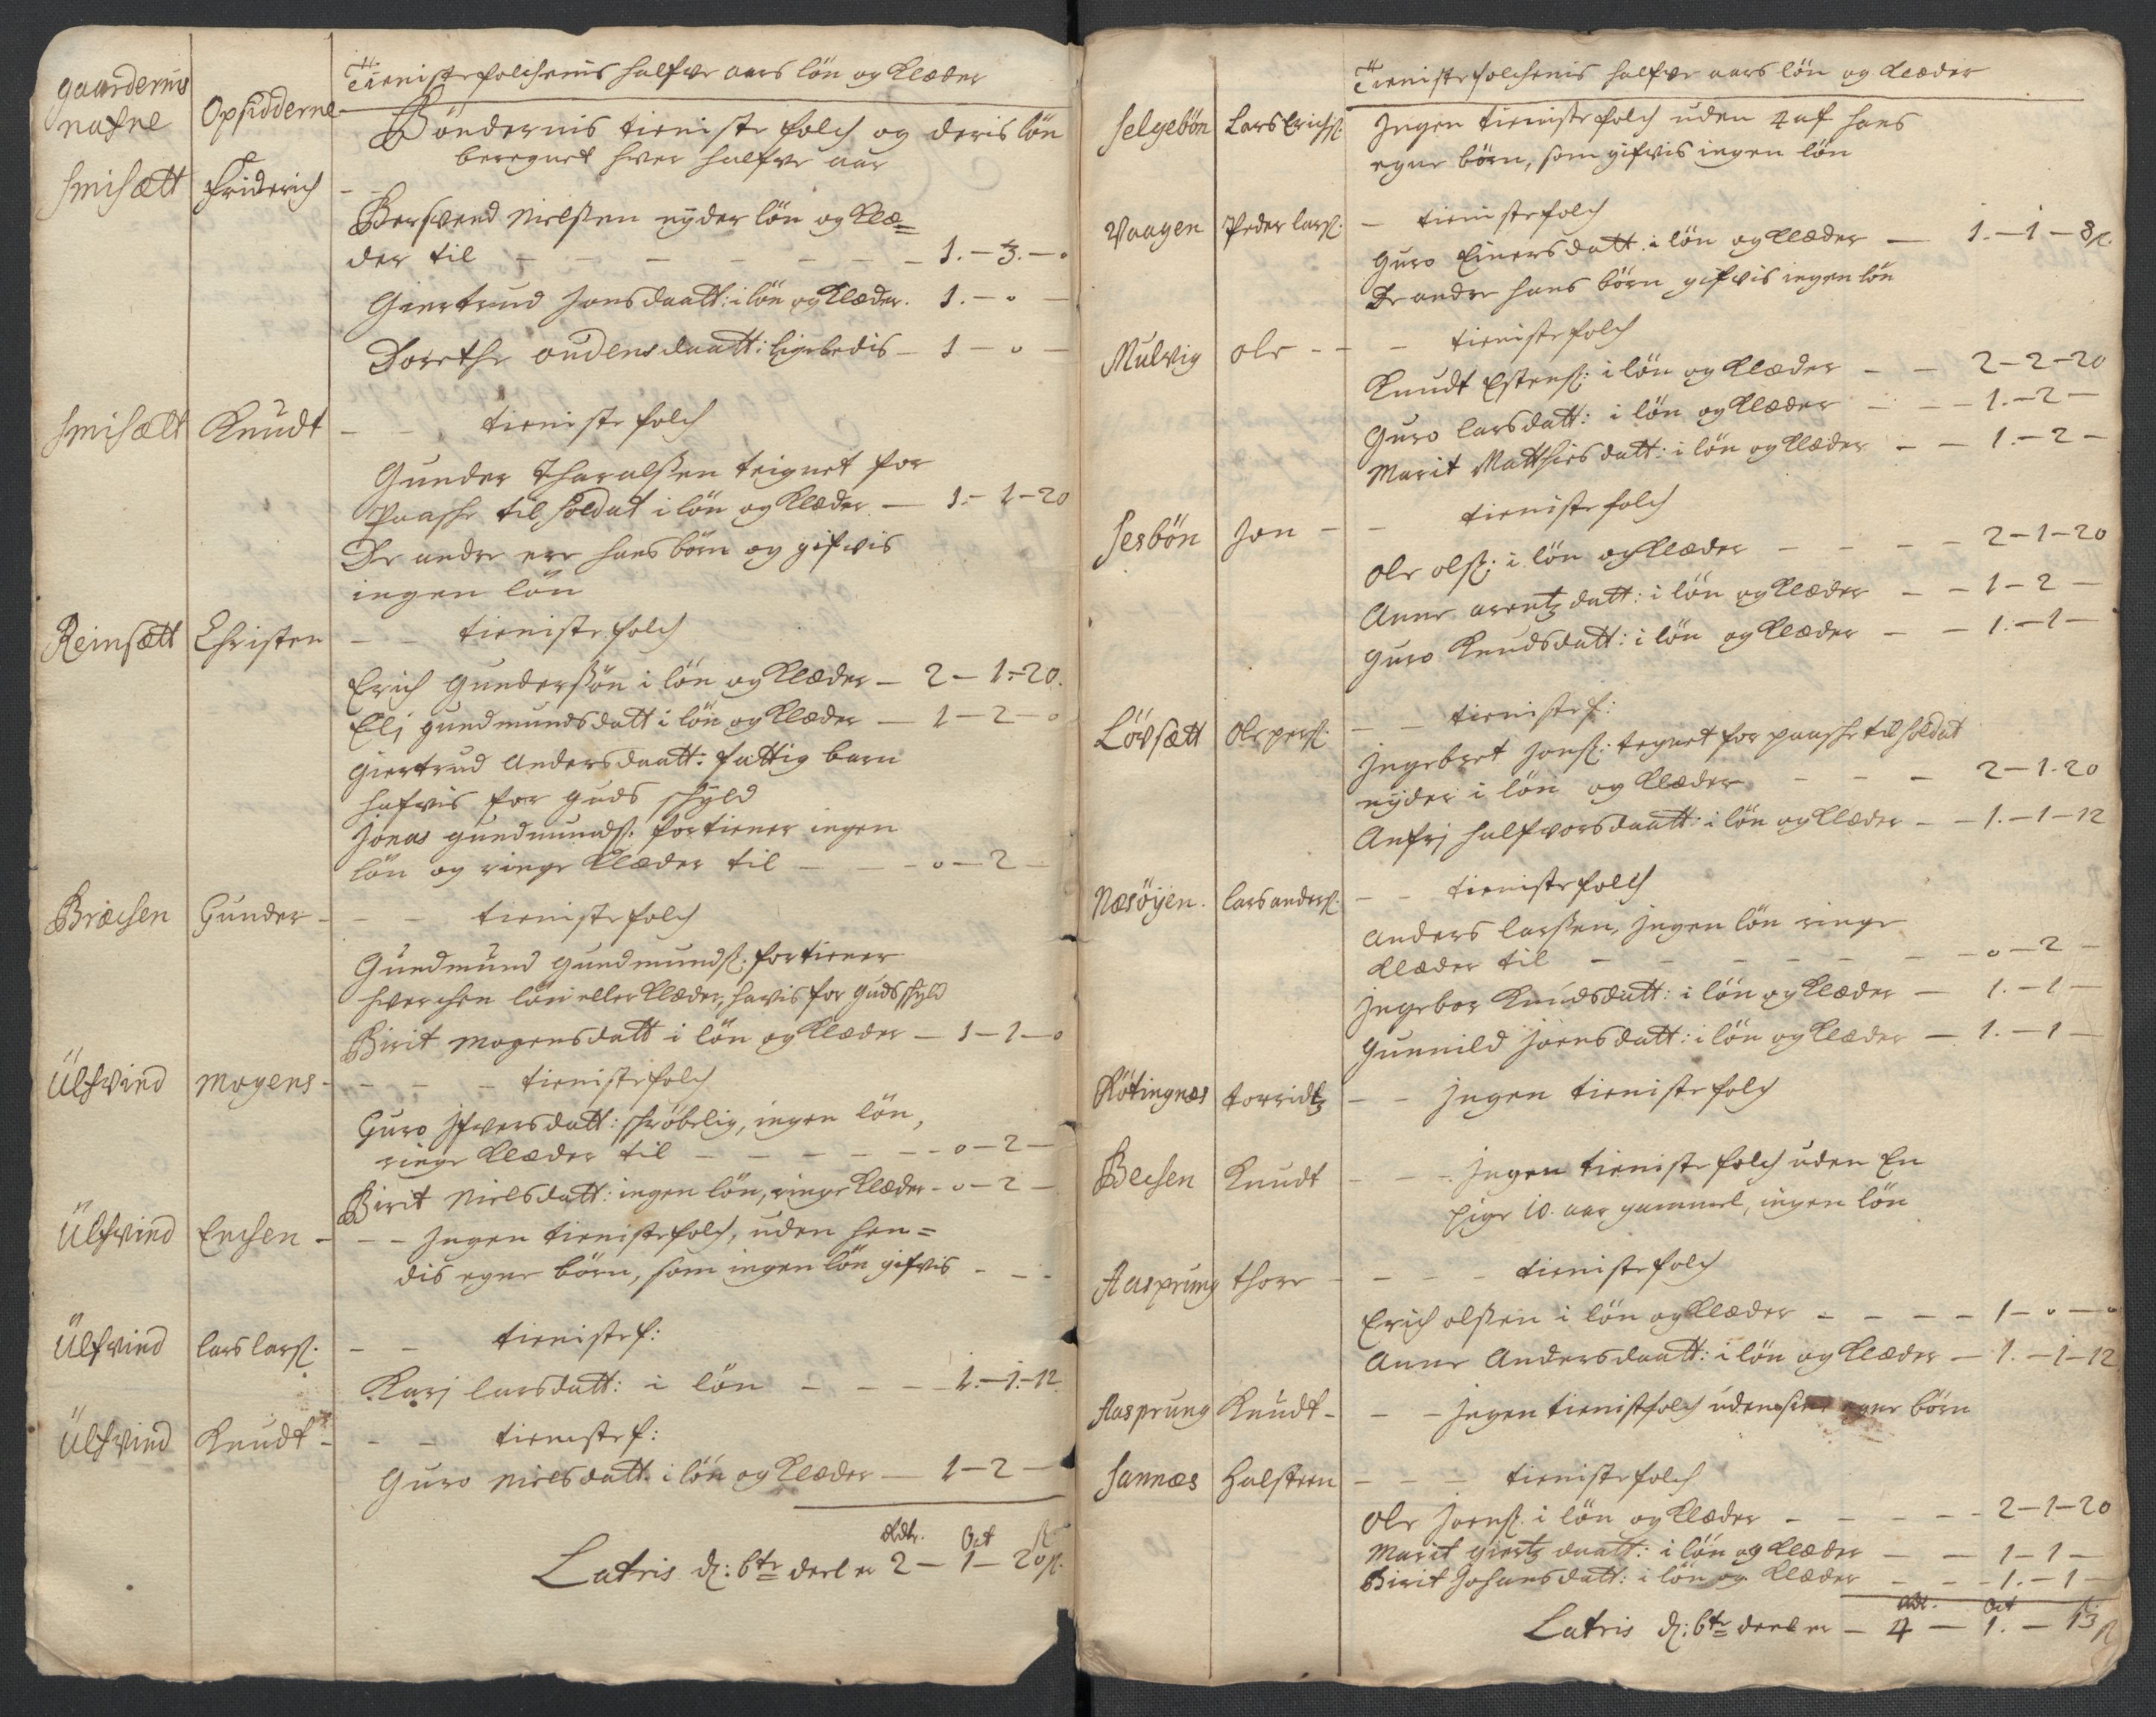 gaardernis nafne
Opsidderne
Tienistefolchenis halfve aars lön og Klæder
Böndernis tieniste folch og deris lön
beregnet hver halfve aar
Smisætt Friderich - -
Bersvend Nielsen nÿder lön og Klæ=
der til - - - - - - 1.-3.-0
Giertrud Jonsdaatt: i lön og Klæder. 1.-0-
Dorethe oudensdaatt: ligeledis - 1-0-
Smisætt Knudt - - tieniste folch
Gunder Tharalsen teignet for
Paasche til Soldat i lön og Klæder - 1.-1-20
De andre ere hans börn og gifvis
ingen lön
Reinsætt Christen - - tieniste folch
Erich Gundersön i lön og Klæder - 2-1-20.
Elj gundmundsdatt i lön og Klæder - 1-2-0
Giertrud Andersdaatt: fattig barn
hafvis for guds schÿld
Jonas gundmunds: fortiener ingen
lön og ringe Klæder til - - 0-2-
Bræchen Gunder - - - tieniste folch
Gundmund gundmunds: fortiener
hverchen lön eller Klæder, havis for guds schÿld
Birit Mogensdatt i lön og Klæder - 1-1-0
Ülfvind Mogens - - - tieniste folch
Guro Ifversdatt: schröbelig, ingen lön,
ringe Klæder til - - - - - 0-2-
Birit Nielsdatt: ingen lön, ringe Klæder - 0-2-
Ülfvind Enchen - - - Ingen tieniste folch, uden hen=
dis egne börn, som ingen lön gifvis - - -
Ülfvind lars lars: - - tieniste f:
Karj larsdatt: i lön - - - 1.-1.-12
Ülfvind Knudt - - - tieniste f:
Guro Nielsdatt. i lön og Klæder - 1-2-
Rdr. Ort ß
Latris d: 6te deel er 2-1-20ß.
Tienistefolchenis halfve aars lön og Klæder
Selgebön Lars Erichs: Ingen tieniste folch uden 4 af hans
egne börn, som gifvis ingen lön
Vaagen Peder lars: - tienistefolch
Guro Einersdatt: i lön og Klæder - 1.-1-8ß.
De andre hans börn gifvis ingen lön
Mulvig ole - - - tienistefolch
Knudt Estens: i lön og Klæder - - 2-2-20
Guro larsdatt: i lön og Klæder - - - 1.-2-
Marit Matthiesdatt: i lön og Klæder - - 1.-2-
Sesbön Jon - - tieniste folch
Ole ols: i lön og Klæder - - - - 2-1-20
Anne arentzdatt: i lön og Klæder - - 1-2-
Guro Knudsdatt: i lön og Klæder - - 1.-1-
Lövsætt Ole pers: - - tieniste f:
Ingebret Jons: tegnet for paasche til soldat
nÿder i lön og Klæder - - - 2-1-20
Anfrj halfvorsdaatt: i lön og Klæder - - 1.-1-12
Næsöÿen. lars anders: - - tieniste folch
Anders larsen, Ingen lön ringe
Klæder til - - - - - - - 0-2-
Ingebor Knudsdatt: i lön og Klæder - 1.-1-
Gunnild Joensdatt: i lön og Klæder - 1.-1-
Rötingnæs torridtz - - Ingen tieniste folch
Bechen Knudt - - - Ingen tieniste folch uden En
pige 10. aar gammel, ingen lön
Aasprung thore - - - - tieniste folch
Erich olsen i lön og Klæder - - - - 1-0-0
Anne Andersdaatt: i lön og Klæder - 1.-1-12
Aasprung Knudt - - - Ingen tienistfolch uden sine egne börn
Sannæs Halsteen - - - tieniste folch
Ole Joens: i lön og Klæder - - - - - 2-1-20
Marit giertzdaatt: i lön og Klæder - - 1-1-
Birit Johansdatt: i lön og Klæder - - - 1.-1-
Rdr. Ort ß
Latris d: 6te deel er - 4-1.-13ß